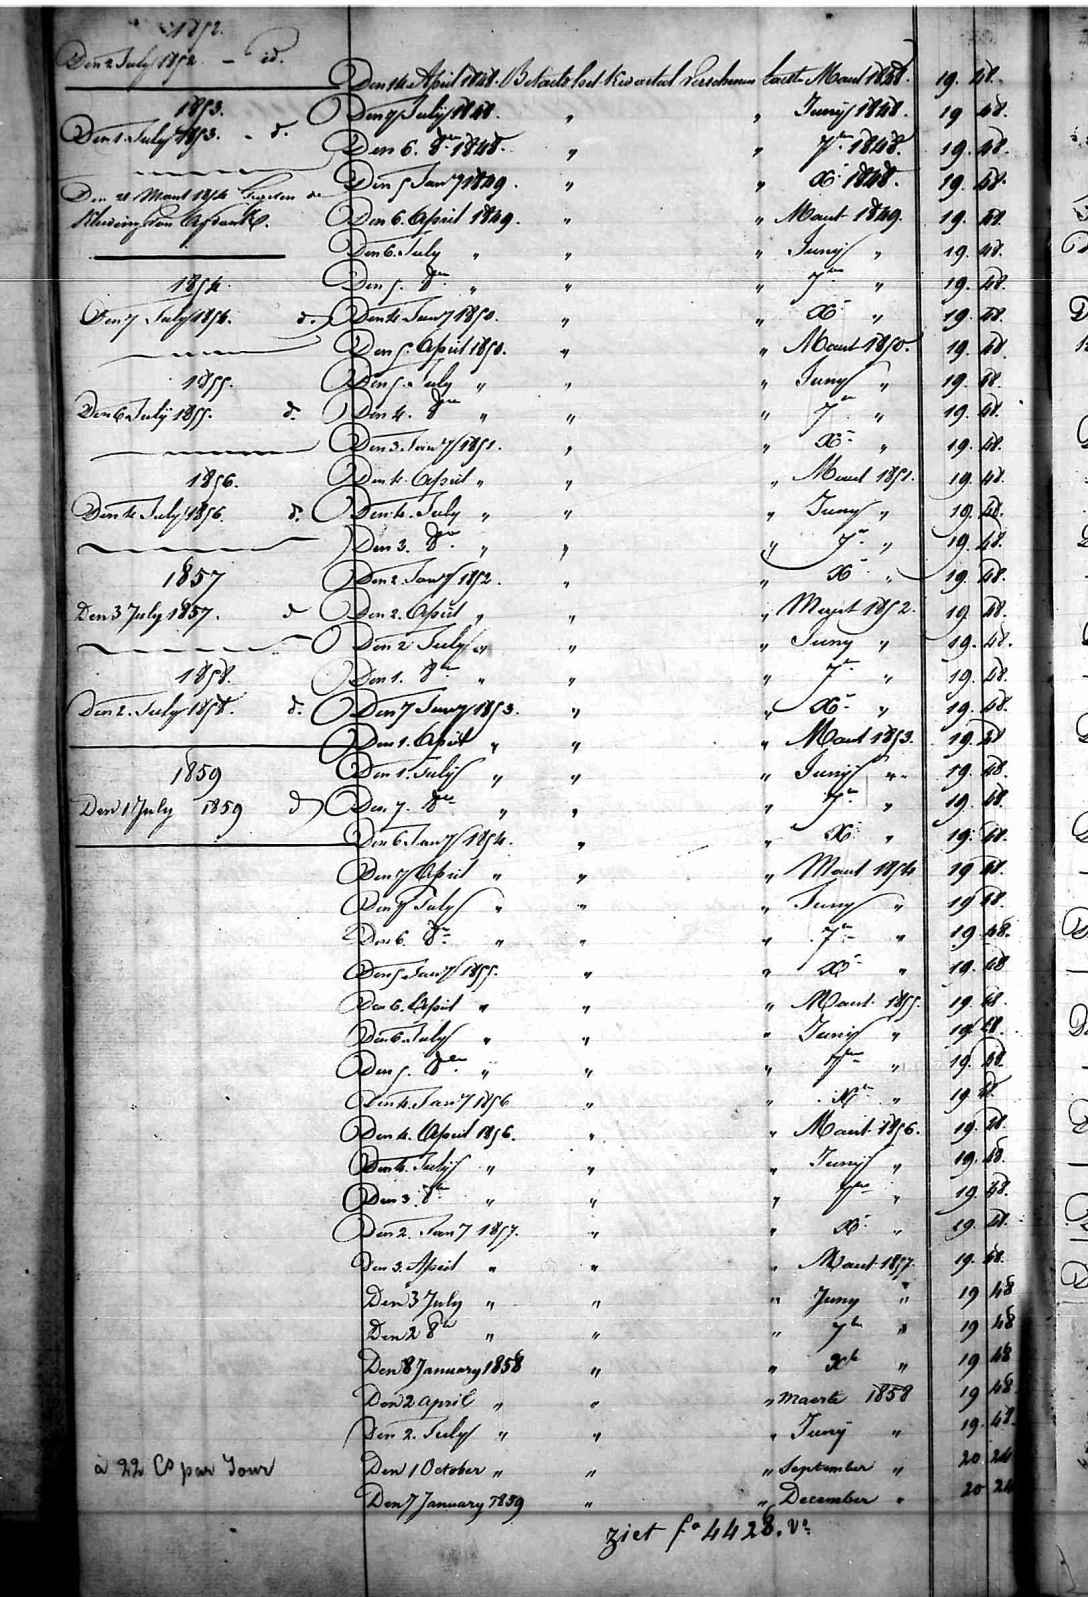 1852.
Den 2 July 1852. - id.
1853.
Den 1. July 1853. - d.
Den 21 Maart 1854
1854.
Den 7 July 1854. d.
1855.
Den 6 July 1855. d.
1856.
Den 4 July 1856. d.
1857
Den 3 July 1857. d
1858.
Den 2. July 1858. d.
1859
Den 1 July 1859 d
à 22 Cs par Jour
Den 14 April 1848. Betaald het Kwartaal verschenen laatst Maart 1848. 19. 48.
Den 7 July 1848. " " Juny 1848. 19 48.
Den 6. 8re 1848. " " 7re 1848. 19. 48.
Den 5 Jany 1849. " " Xr 1848. 19. 48.
Den 6. April 1849. " " Maart 1849. 19. 48.
Den 6. July " " " Juny " 19. 48.
Den 5. 8re " " " 7re " 19. 48.
Den 4. Jany 1850. " " Xr " 19. 48.
Den 5. April 1850. " " Maart 1850. 19. 48.
Den 5. July " " " Juny " 19. 48.
Den 4. 8re " " " 7re " 19. 48.
Den 3. Jany 1851. " " Xr " 19. 48.
Den 4. April " " " Maart 1851. 19. 48.
Den 4. July " " " Juny " 19. 48.
Den 3. 8re " " " 7re " 19. 48.
Den 2. Jany 1852. " " Xr " 19. 48.
Den 2. April " " " Maart 1852. 19. 48.
Den 2 July " " " Juny " 19. 48.
Den 1. 8re " " " 7re " 19. 48.
Den 7 Jany 1853. " " Xr " 19. 48.
Den 1. April " " " Maart 1853. 19. 48
Den 1. July " " " Juny " 19. 48.
Den 7. 8re " " " 7re " 19. 48.
Den 6 Jany 1854. " " Xr " 19. 48.
Den 7 April " " " Maart 1854 19 48.
Den 7 July " " " Juny " 19 48.
Den 6. 8re " " " 7re " 19. 48.
Den 5 Jany 1855. " " Xr " 19. 48
Den 6. April " " " Maart 1855. 19. 48.
Den 6 July " " " Juny " 19. 48.
Den 5. 8re " " " 7re " 19. 48.
Den 4. Jany 1856 " " Xr " 19 48.
Den 4. April 1856. " " Maart 1856. 19. 48.
Den 4. July " " " Juny " 19. 48.
Den 3. 8re " " " 7re " 19 48.
Den 2. Jany 1857. " " Xr " 19 48.
Den 3. April " " " Maart 1857 19. 48.
Den 3 July " " " Juny " 19 48
Den 2 8re " " " 7re " 19 48
Den 8 January 1858 " " Xbr " 19 48
Den 2 april " " " maerte 1858 19 48
Den 2. July " " " Juny " 19. 48.
Den 1 October " " " September " 20. 24
Den 7 January 1859 " " December " 20 24
ziet fo 4428. Vo